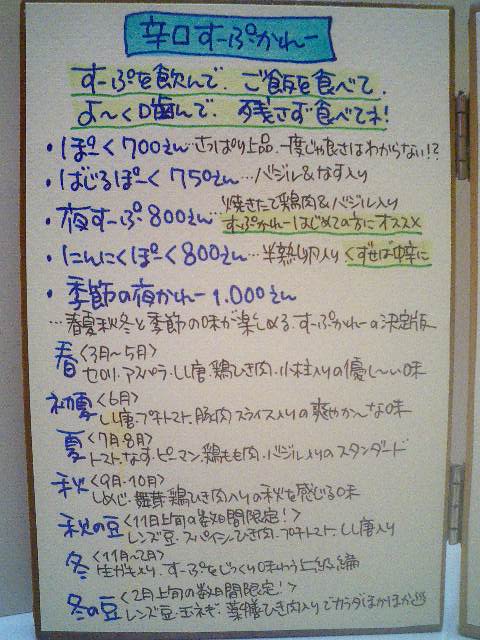 辛口すーぷかれー
すーぷを飲んで、ご飯を食べて、
よ〜く噛んで、残さず食べてネ!
・ぽーく700えん…さっぱり上品、一度じゃ良さはわからない!?
・ばじるぽーく750えん…バジル&なす入り
・夜すーぷ800えん…焼きたて鶏肉&バジル入り
すーぷかれーはじめての方にオススメ
・にんにくぽーく800えん…半熟卵入りくずせば中辛に
・季節の夜かれー1.000えん
…春夏秋冬と季節の味が楽しめる、すーぷかれーの決定版
春<3月〜5月>
セロリ・アスパラ・しし唐・鶏ひき肉・小柱入りの優し〜い味
初夏<6月>
しし唐・プチトマト・豚肉スライス入りの爽やか〜な味
夏<7月・8月>
トマト・なす・ピーマン・鶏もも肉・バジル入りのスタンダード
秋<9月・10月>
しめじ・舞茸・鶏ひき肉入りの秋を感じる味
秋の豆<11月上旬の数日間限定!>
レンズ豆・スパイシーひき肉・プチトマト・しし唐入り
冬<11月〜2月>
生ガキ入り、すーぷをじっくり味わう上級編
冬の豆<2月上旬の数日間限定!>
レンズ豆・玉ネギ・薬膳ひき肉入りでカラダぽかぽか